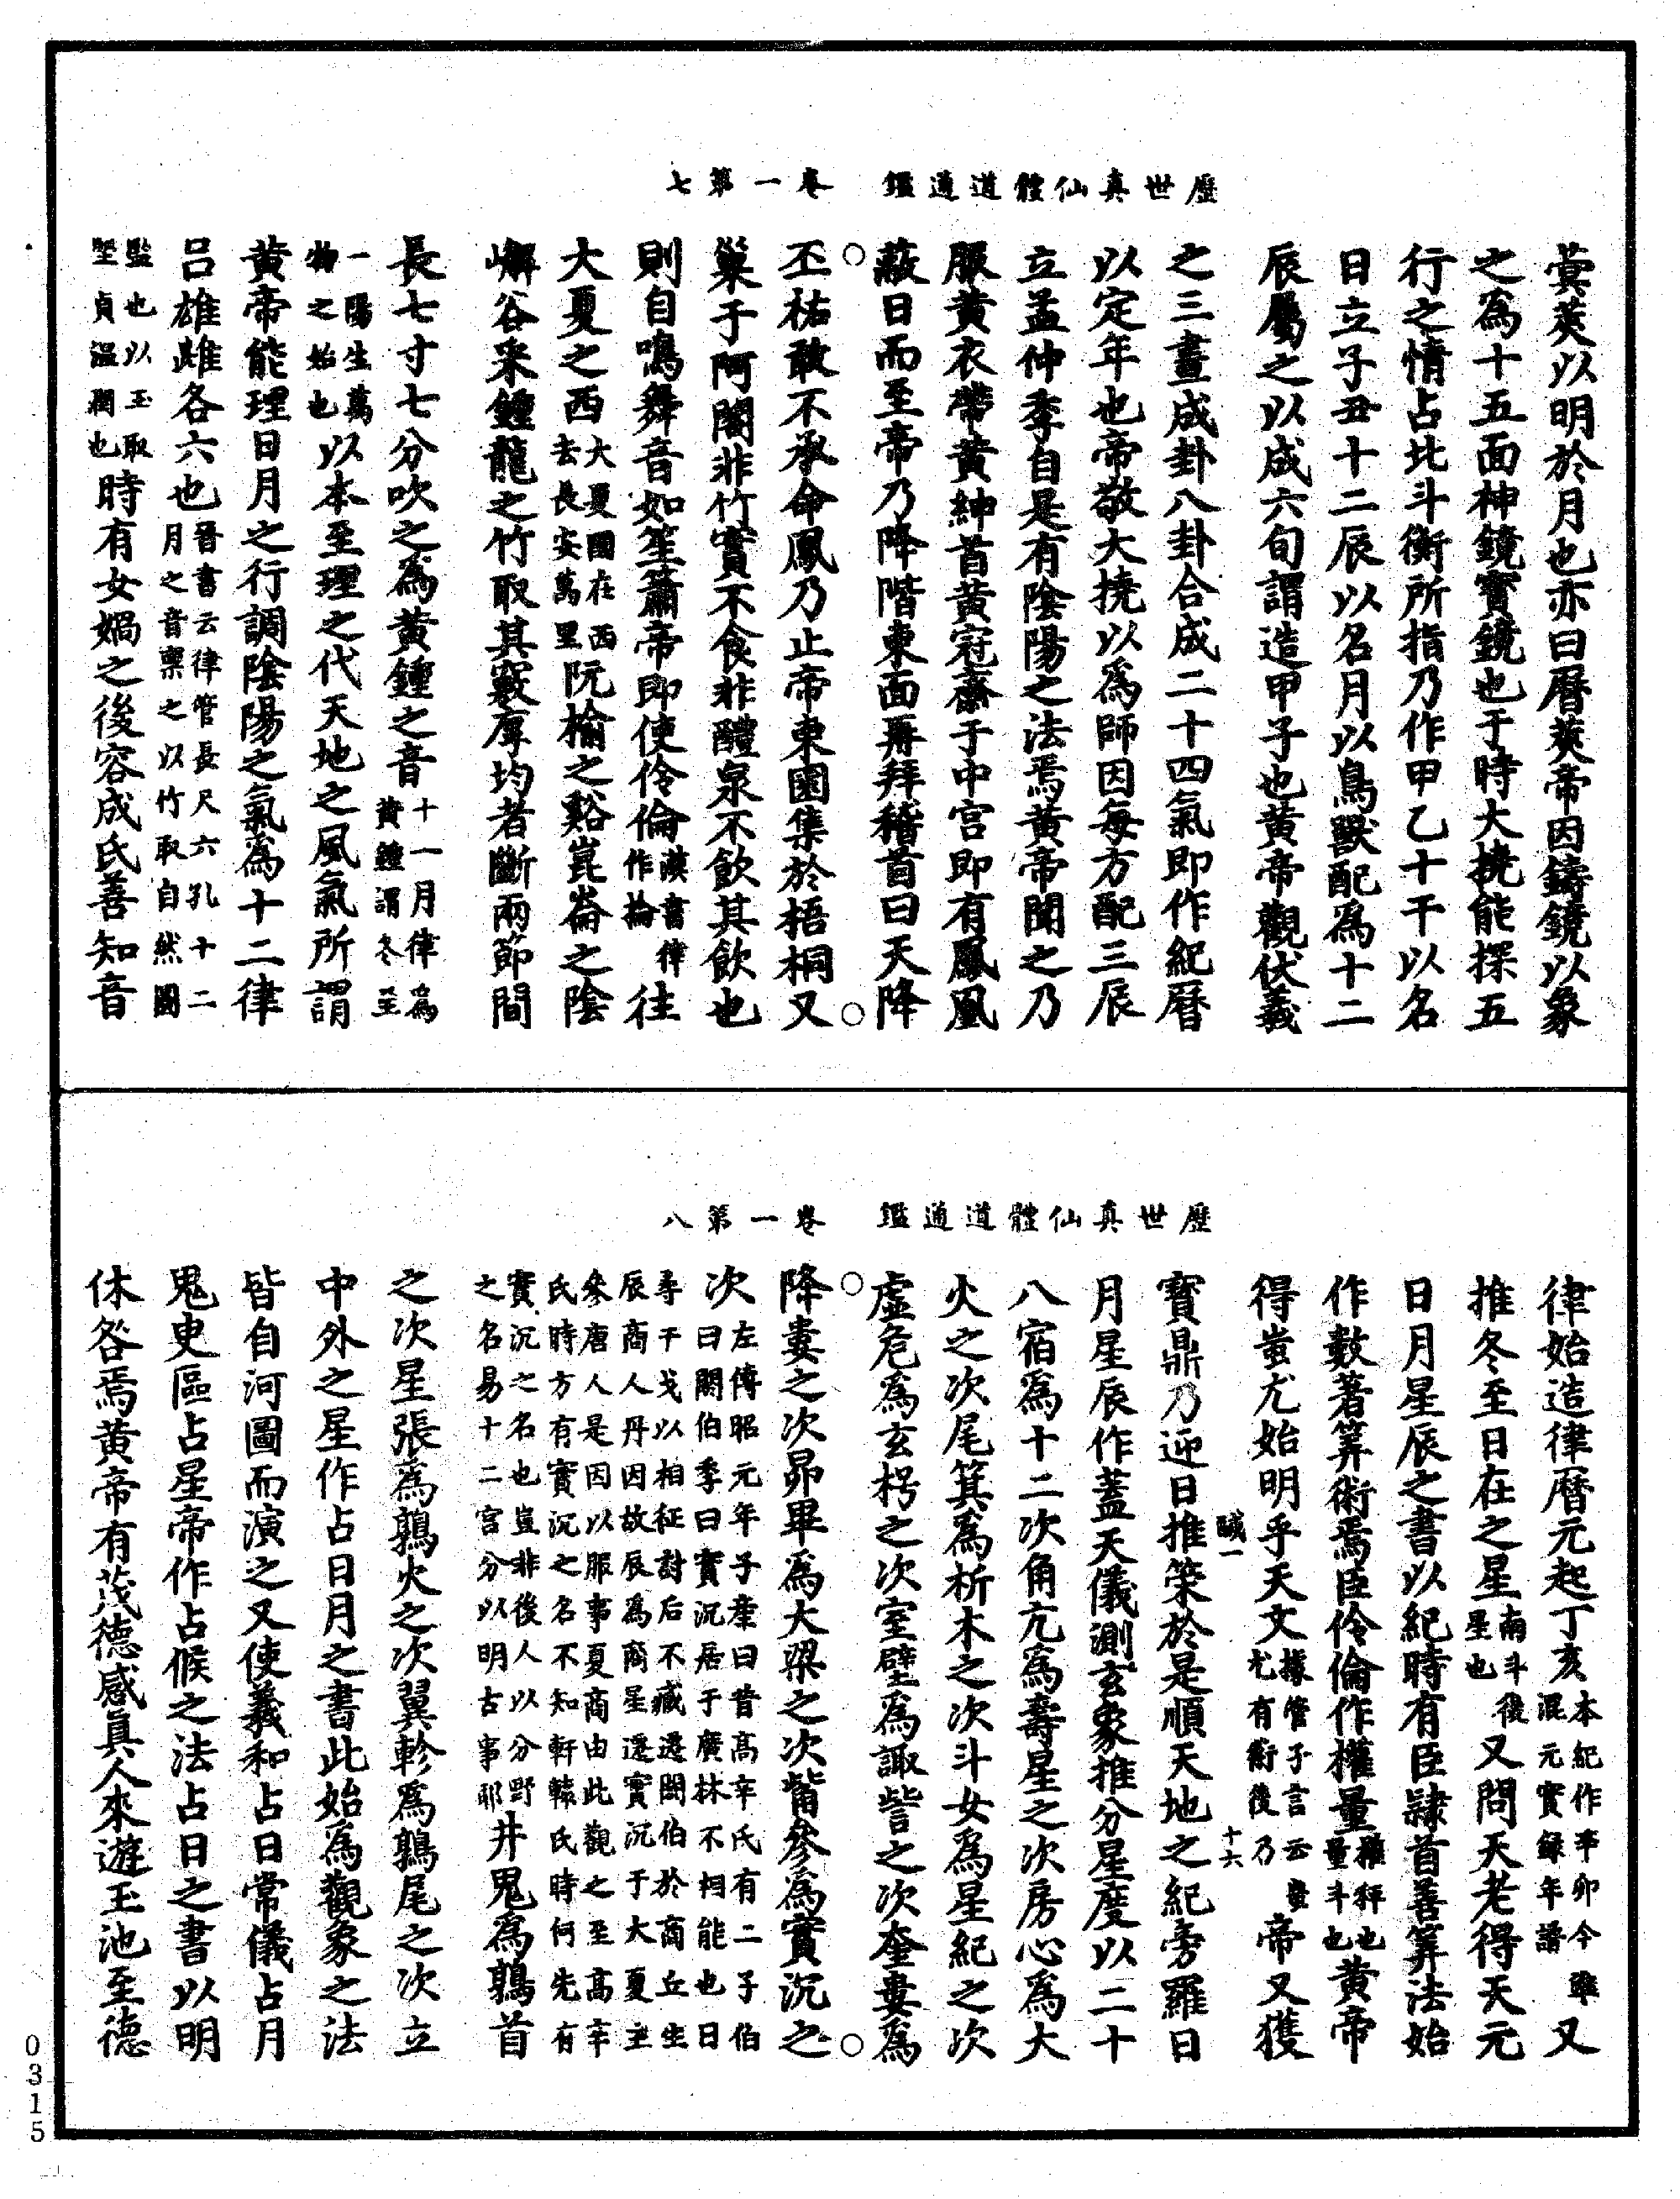 歷世真仙體道通鑑　卷一第七
蓂莢以明於月也亦曰曆莢帝因鑄鏡以象
之為十五面神鏡寶鏡也于時大撓能探五
行之情占北斗衡所指乃作甲乙十干以名
日立子丑十二辰以名月以鳥獸配為十二
辰屬之以成六旬謂造甲子也黃帝觀伏羲
之三畫成卦八卦合成二十四氣即作紀曆
以定年也帝敬大撓以為師因每方配三辰
立孟仲季自是有陰陽之法焉黃帝聞之乃
服黃衣帶黃紳首黃冠齋于中宮即有鳳凰
蔽日而至帝乃降階東面再拜稽首曰天降
丕祐敢不承命鳳乃止帝東園集於梧桐又
巢于阿閣非竹實不食非醴泉不飲其飲也
則自鳴舞音如笙簫帝即使伶倫漢書律作掄往
大夏之西大夏國在西去長安萬里阮榆之谿崑崙之陰
嶰谷采鍾龍之竹取其竅厚均者斷兩節間
長七寸七分吹之為黃鍾之音十一月律為黃鍾謂冬至
一陽生萬物之始也以本至理之代天地之風氣所謂
黃帝能理日月之行調陰陽之氣為十二律
呂雄雌各六也晉書云律管長尺六孔十二月之音禀之以竹取自然圓
監也以玉取堅貞溫潤也時有女媧之後容成氏善知音
歷世真仙體道通鑑　卷一第八
律始造律曆元起丁亥本紀作辛卯今雖混元實録年譜又
推冬至日在之星南斗後星也又問天老得天元
日月星辰之書以紀時有臣隷首善筭法始
作數著筭術焉臣伶倫作權量權秤也量斗也黃帝
得蚩尤始明乎天文據管子言云蚩尤有術後乃帝又獲
寶鼎乃迎日推筞於是順天地之紀旁羅日
月星辰作蓋天儀測玄象推分星度以二十
八宿為十二次角亢為壽星之次房心為大
火之次尾箕為析木之次斗女為星紀之次
虛危為玄枵之次室壁為諏訾之次奎婁為
降婁之次昴畢為大梁之次觜參為實沉之
次左傳昭元年子產曰昔高辛氏有二子伯曰閼伯季曰實沉居于廣林不相能也日
尋干戈以相征討后不臧遷閼伯於商丘主辰商人丹因故辰為商星遷實沉于大夏主
參唐人是因以服事夏商由此觀之至高辛氏時方有實沉之名不知軒轅氏時何先有
實沉之名也豈非後人以分野之名易十二宮分以明古事耶井鬼為鶉首
之次星張為鶉火之次翼軫為鶉尾之次立
中外之星作占日月之書此始為觀象之法
皆自河圖而演之又使羲和占日常儀占月
鬼臾區占星帝作占候之法占日之書以明
休咎焉黃帝有茂德感真人來遊玉池至德
鹹一
十六
0315